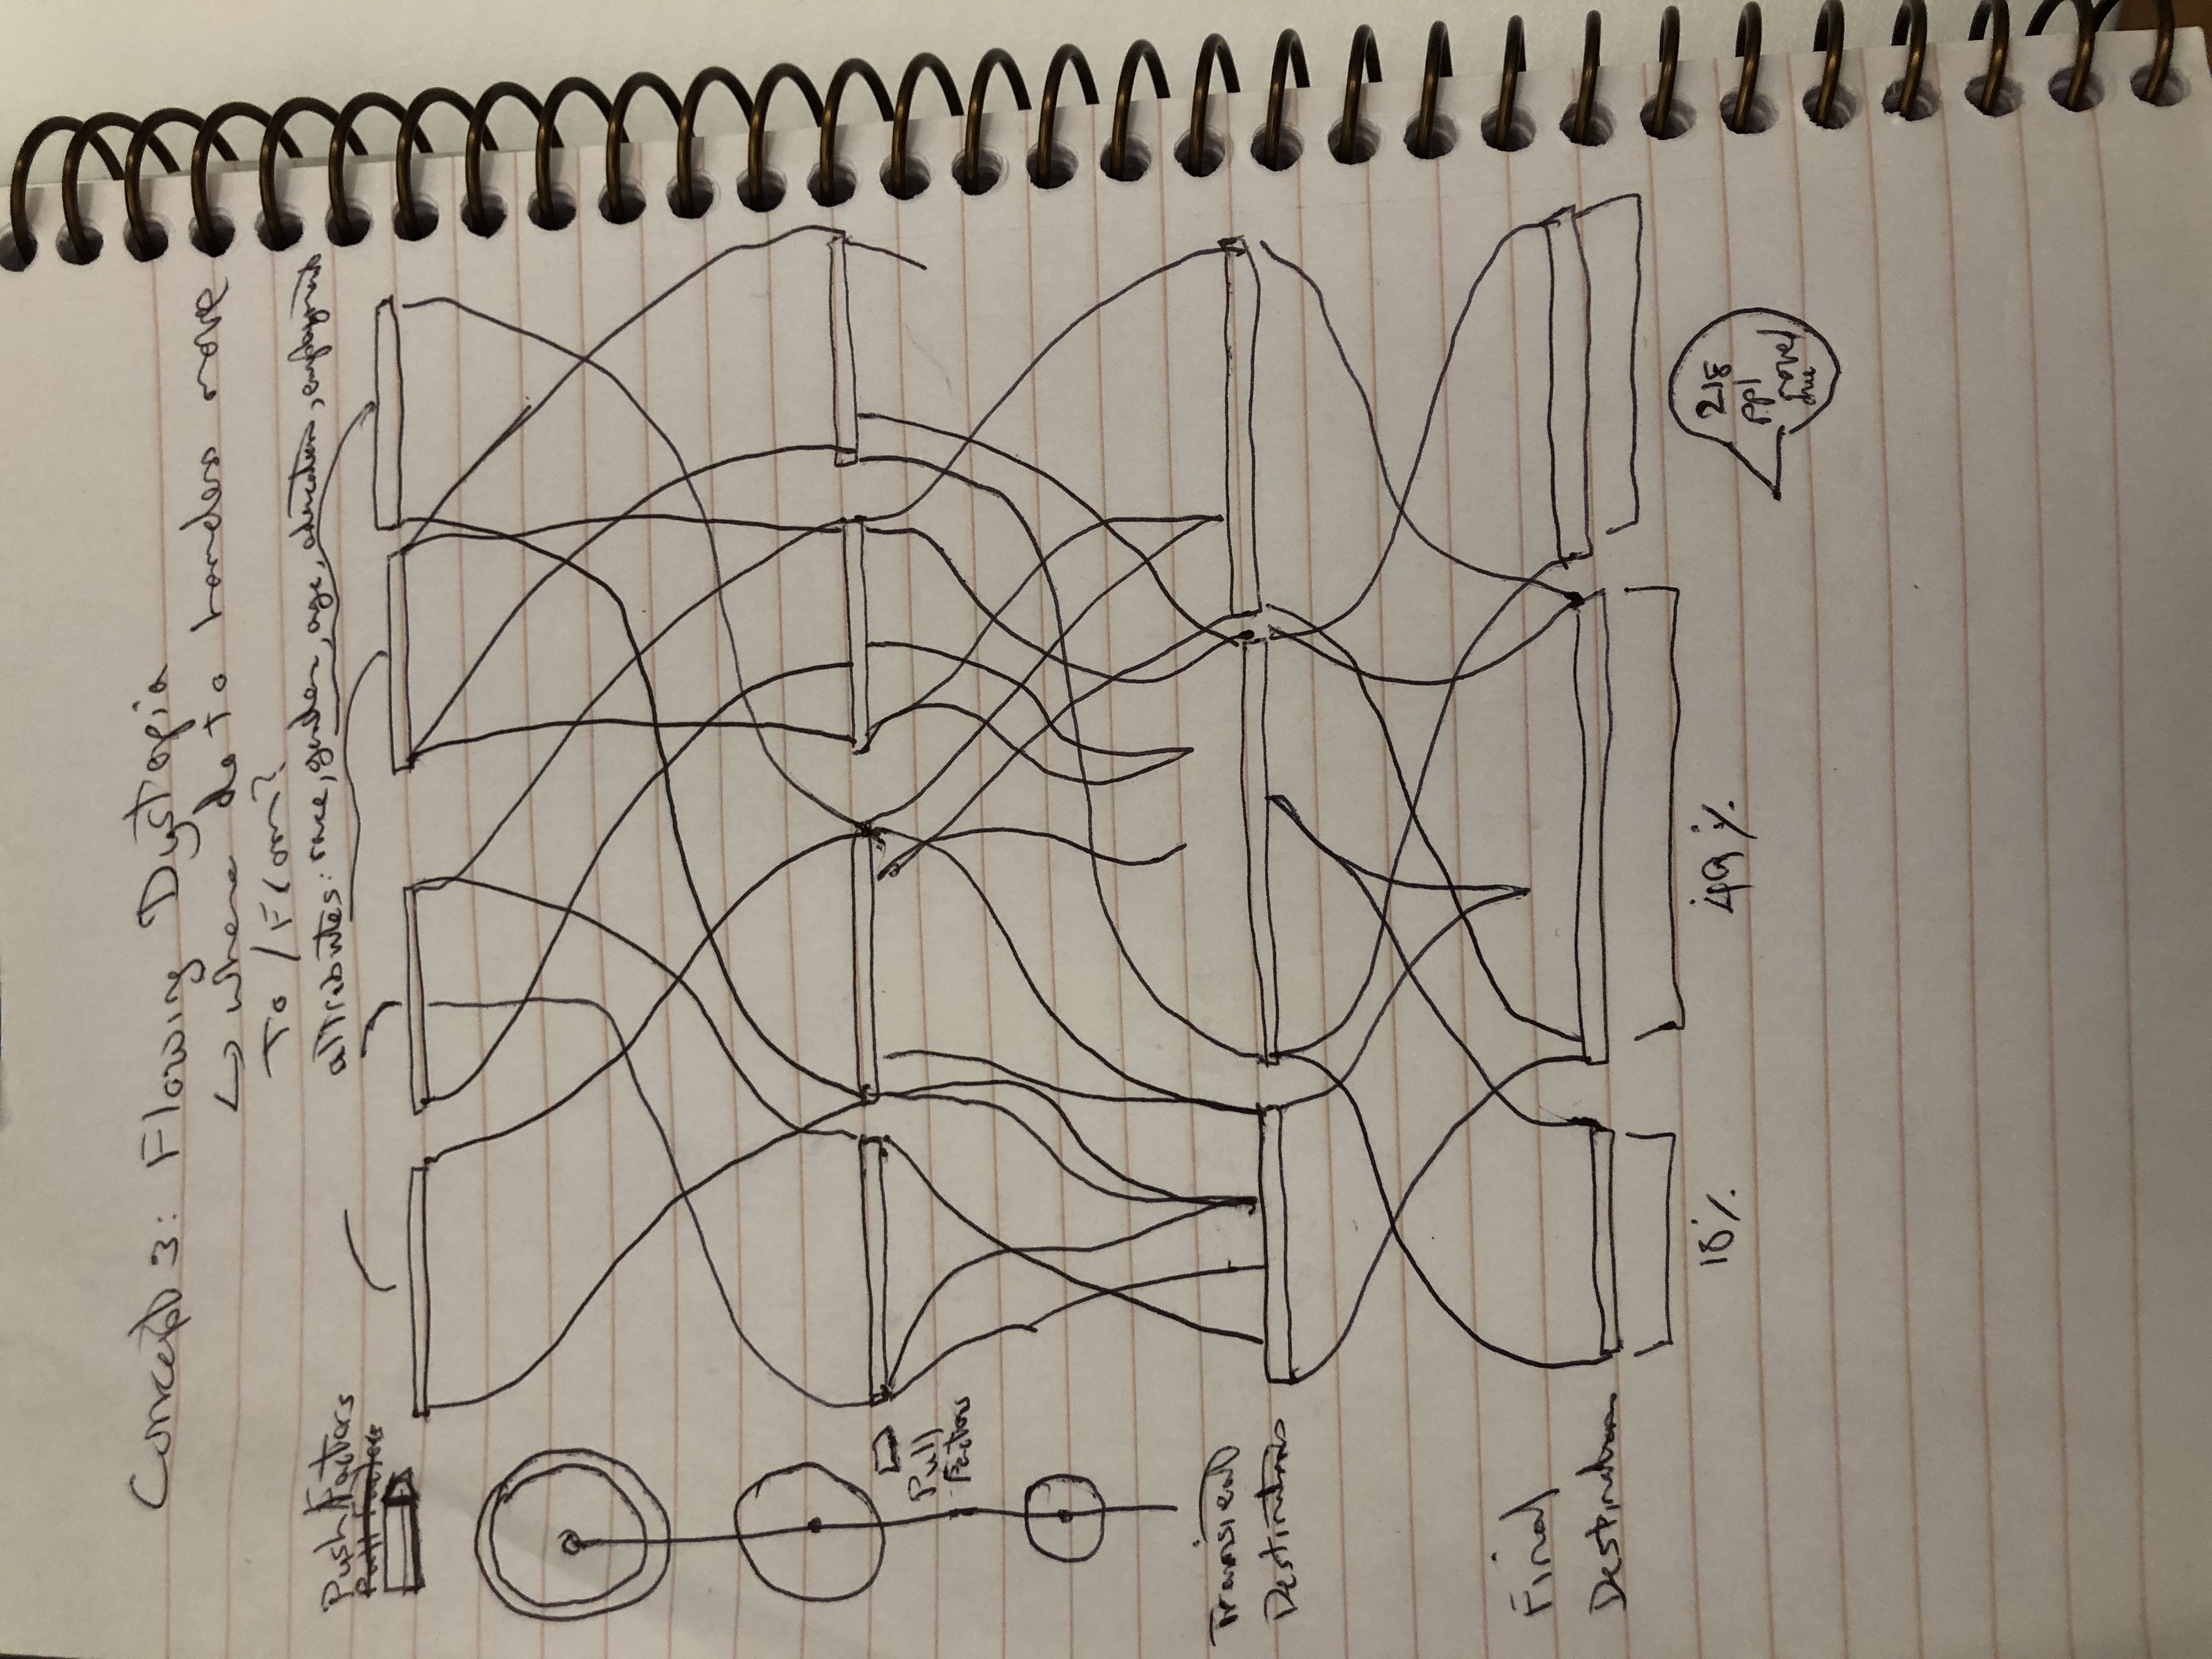 Concept 3: Flowing Dystopia
↳ where do to homeless move
To / From?
attributes: race, gender, age, education, employment
Push Factors
Pull Factors
Pull
Factors
Transient
Destinations
Final
Destinations
18%
49%
218
ppl
moved
due